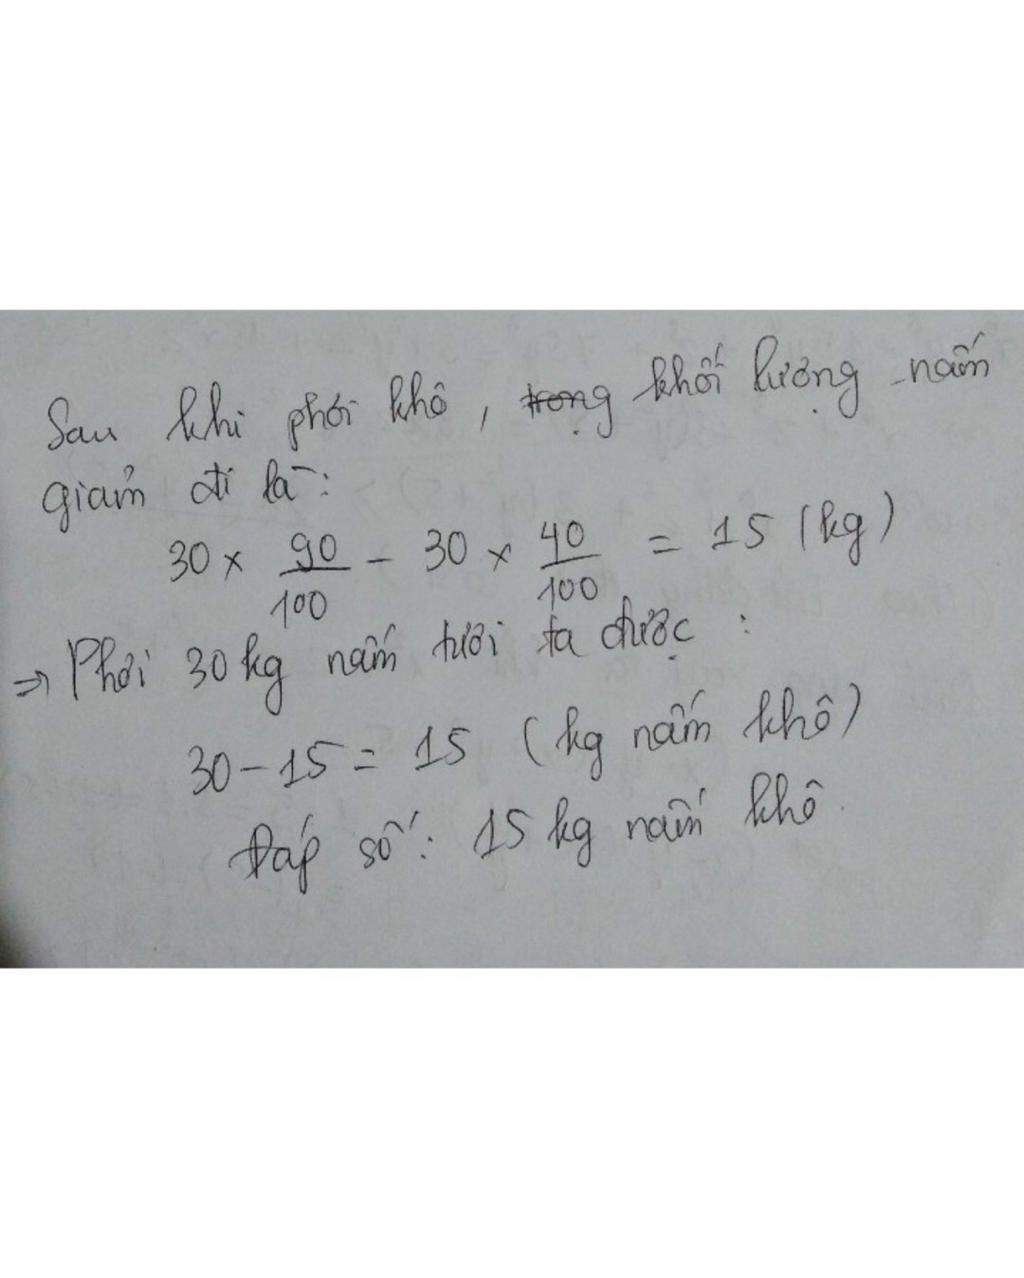 Sau khi phơi khô, trọng khối lượng nấm
giảm đi là:
30 × 90/100 - 30 × 40/100 = 15 (kg)
⇒ Phơi 30kg nấm tươi ta được:
30 - 15 = 15 (kg nấm khô)
Đáp số: 15 kg nấm khô.